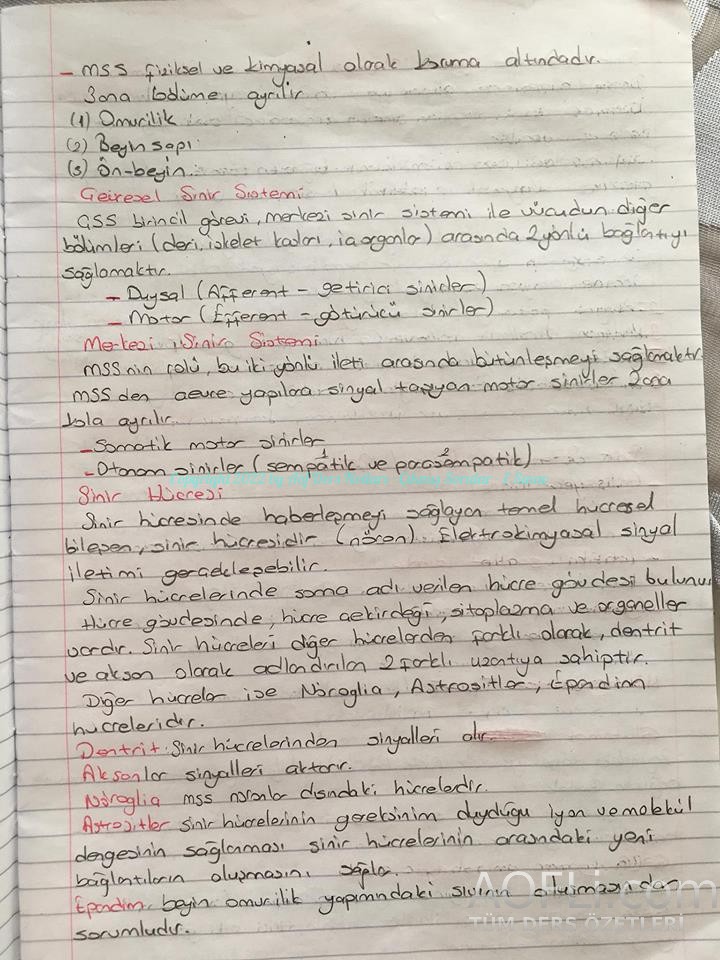 - MSS fiziksel ve kimyasal olarak koruma altındadır.
3 ana bölüme ayrılır
(1) Omurilik
(2) Beyin sapı
(3) Ön-beyin.
Çevresel Sinir Sistemi
ÇSS birincil görevi, merkezi sinir sistemi ile vücudun diğer
bölümleri (deri, iskelet kasları, iç organlar) arasında 2 yönlü bağlantıyı
sağlamaktır.
- Duysal (Afferent - getirici sinirler)
- Motor (Efferent - götürücü sinirler)
Merkezi Sinir Sistemi
MSS nin rolü, bu iki yönlü ileti arasında bütünleşmeyi sağlamaktır
MSS den çevre yapılara sinyal taşıyan motor sinirler 2 ana
kola ayrılır.
- Somatik motor sinirler
- Otonom sinirler (sempatik¹ ve parasempatik²)
Sinir Hücresi
Sinir hücresinde haberleşmeyi sağlayan temel hücresel
bileşen, sinir hücresidir (nöron). Elektrokimyasal sinyal
iletimi gerçekleşebilir.
Sinir hücrelerinde soma adı verilen hücre gövdesi bulunur
Hücre gövdesinde, hücre çekirdeği, sitoplazma ve organeller
vardır. Sinir hücreleri diğer hücrelerden farklı olarak, dentrit
ve akson olarak adlandırılan 2 farklı uzantıya sahiptir.
Diğer hücreler ise Nöroglia, Astrositler, Ependim
hücreleridir.
Dentrit Sinir hücrelerinden sinyalleri alır
Aksonlar sinyalleri aktarır.
Nöroglia mss nöronlar dışındaki hücrelerdir.
Astrositler sinir hücrelerinin gereksinim duyduğu iyon ve molekül
dengesinin sağlanması sinir hücrelerinin arasındaki yeni
bağlantıların oluşmasını sağlar.
Ependim beyin omurilik yapımındaki sıvının
sorumludur.
TÜM DERS ÖZETLERİ